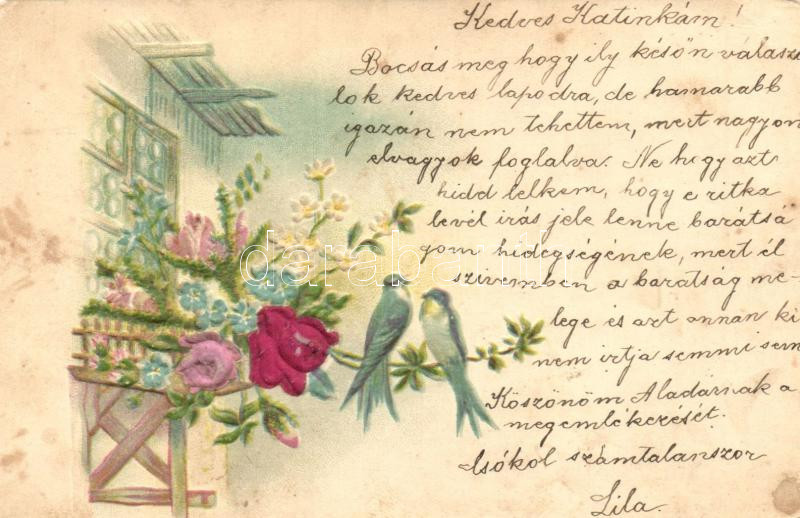 Kedves Katinkám!
Bocsás meg hogy ily későnválaszo
lok kedves lapodra, de hamarabb
igazán nem tehettem, mert nagyon
elvagyok foglalva. Ne hogy azt
hidd lelkem, hogy e ritka
levél irás jele lenne barátsá
gom hidegségének, mert él
szivemben a barátság me-
lege és azt onnan ki
nem irtja semmi sem
Köszönöm Aladárnak a
megemlékezését.
Csókol számtalanszor
Lila.
darabanth